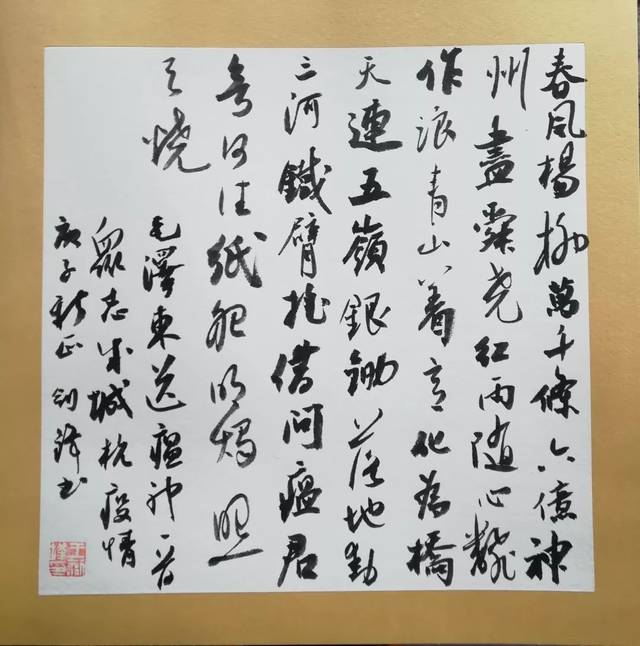 春風楊柳萬千條六億神
州盡舜堯紅雨隨心翻
作浪青山着意化為橋
天連五嶺銀鋤落地動
三河鐵臂搖借問瘟君
欲何往紙船明燭照
天燒
毛澤東送瘟神一首
眾志成城抗疫情
庚子新正剑鋒书